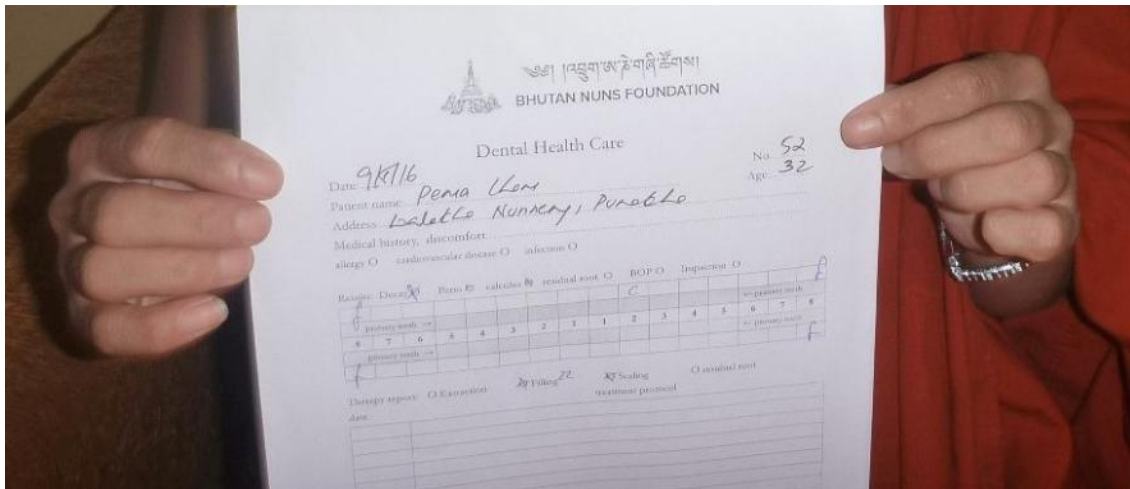 ༄༅། །འབྲུག་ཨ་ནེའི་གཞི་ཚོགས།
BHUTAN NUNS FOUNDATION
Dental Health Care
Date 9/5/16 No. 52
Patient name Pema Age 32
Address Nunnery,
Medical history, discomfort
allergy O cardiovascular disease O infection O
Decay Perio calculus residual root O BOP O Impaction O
f C f
primary teeth → ← primary teeth
8 7 6 5 4 3 2 1 1 2 3 4 5 6 7 8
primary teeth → ← primary teeth
f f
Therapy report: O Extraction Filling 22 Scaling O residual root
date treatment protocol